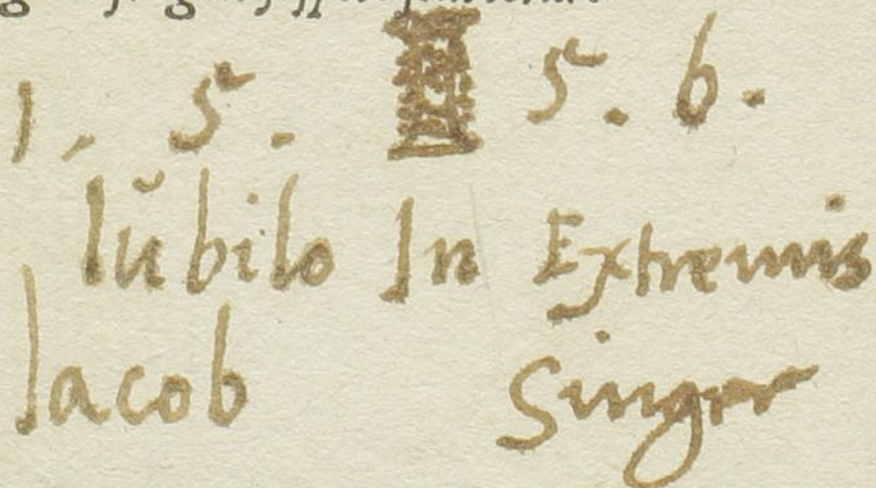 1. 5. 5. 6.
Iŭbilo In Extremis
Iacob Singer